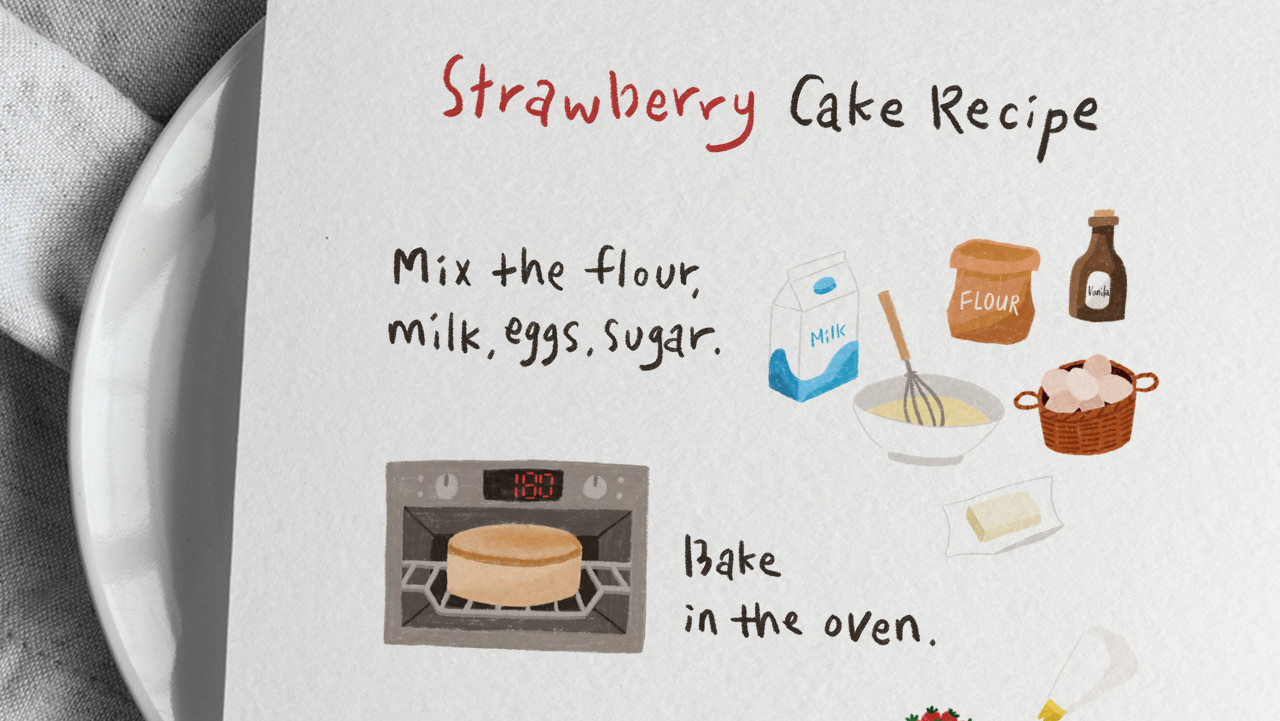 Strawberry Cake Recipe
Mix the flour,
milk, eggs, sugar.
Milk
FLOUR
Vanilla
180
Bake
in the oven.